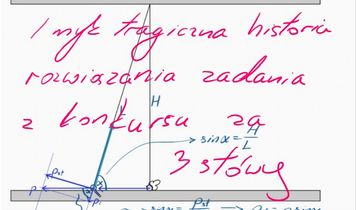 I myk tragiczna historia
rozwiązania zadania
z konkursu za
3 stówy
H
sinα = H/L
Pst
P